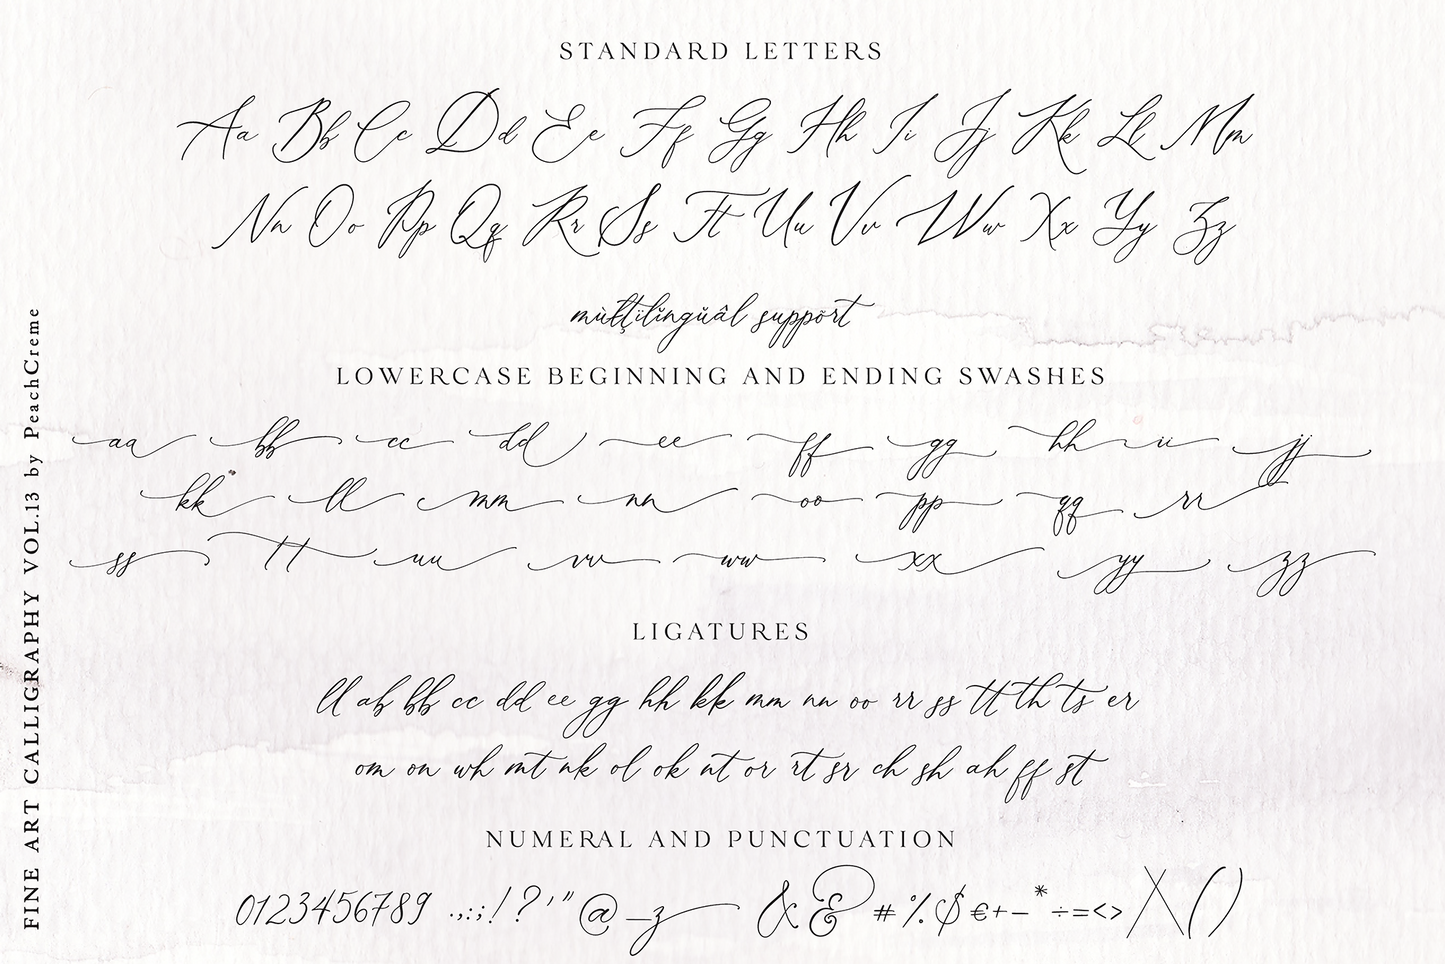 STANDARD LETTERS
Aa Bb Cc Dd Ee Ff Gg Hh Ii Jj Kk Ll Mm
Nn Oo Pp Qq Rr Ss Tt Uu Vv Ww Xx Yy Zz
mùľţïlïngŭâl sŭppõrt
LOWERCASE BEGINNING AND ENDING SWASHES
aa bb cc dd ee ff gg hh ii jj
kk ll mm nn oo pp qq rr
ss tt uu vv ww xx yy zz
LIGATURES
ll ab bb cc dd ee gg hh kk mm nn oo rr ss tt th ts er
om on wh mt nk ol ok nt or rt sr ch sh ah ff st
NUMERAL AND PUNCTUATION
0123456789 .,:;!?'"@_z & & #%$€+-*÷=<>/\()
FINE ART CALLIGRAPHY VOL.13 by PeachCreme